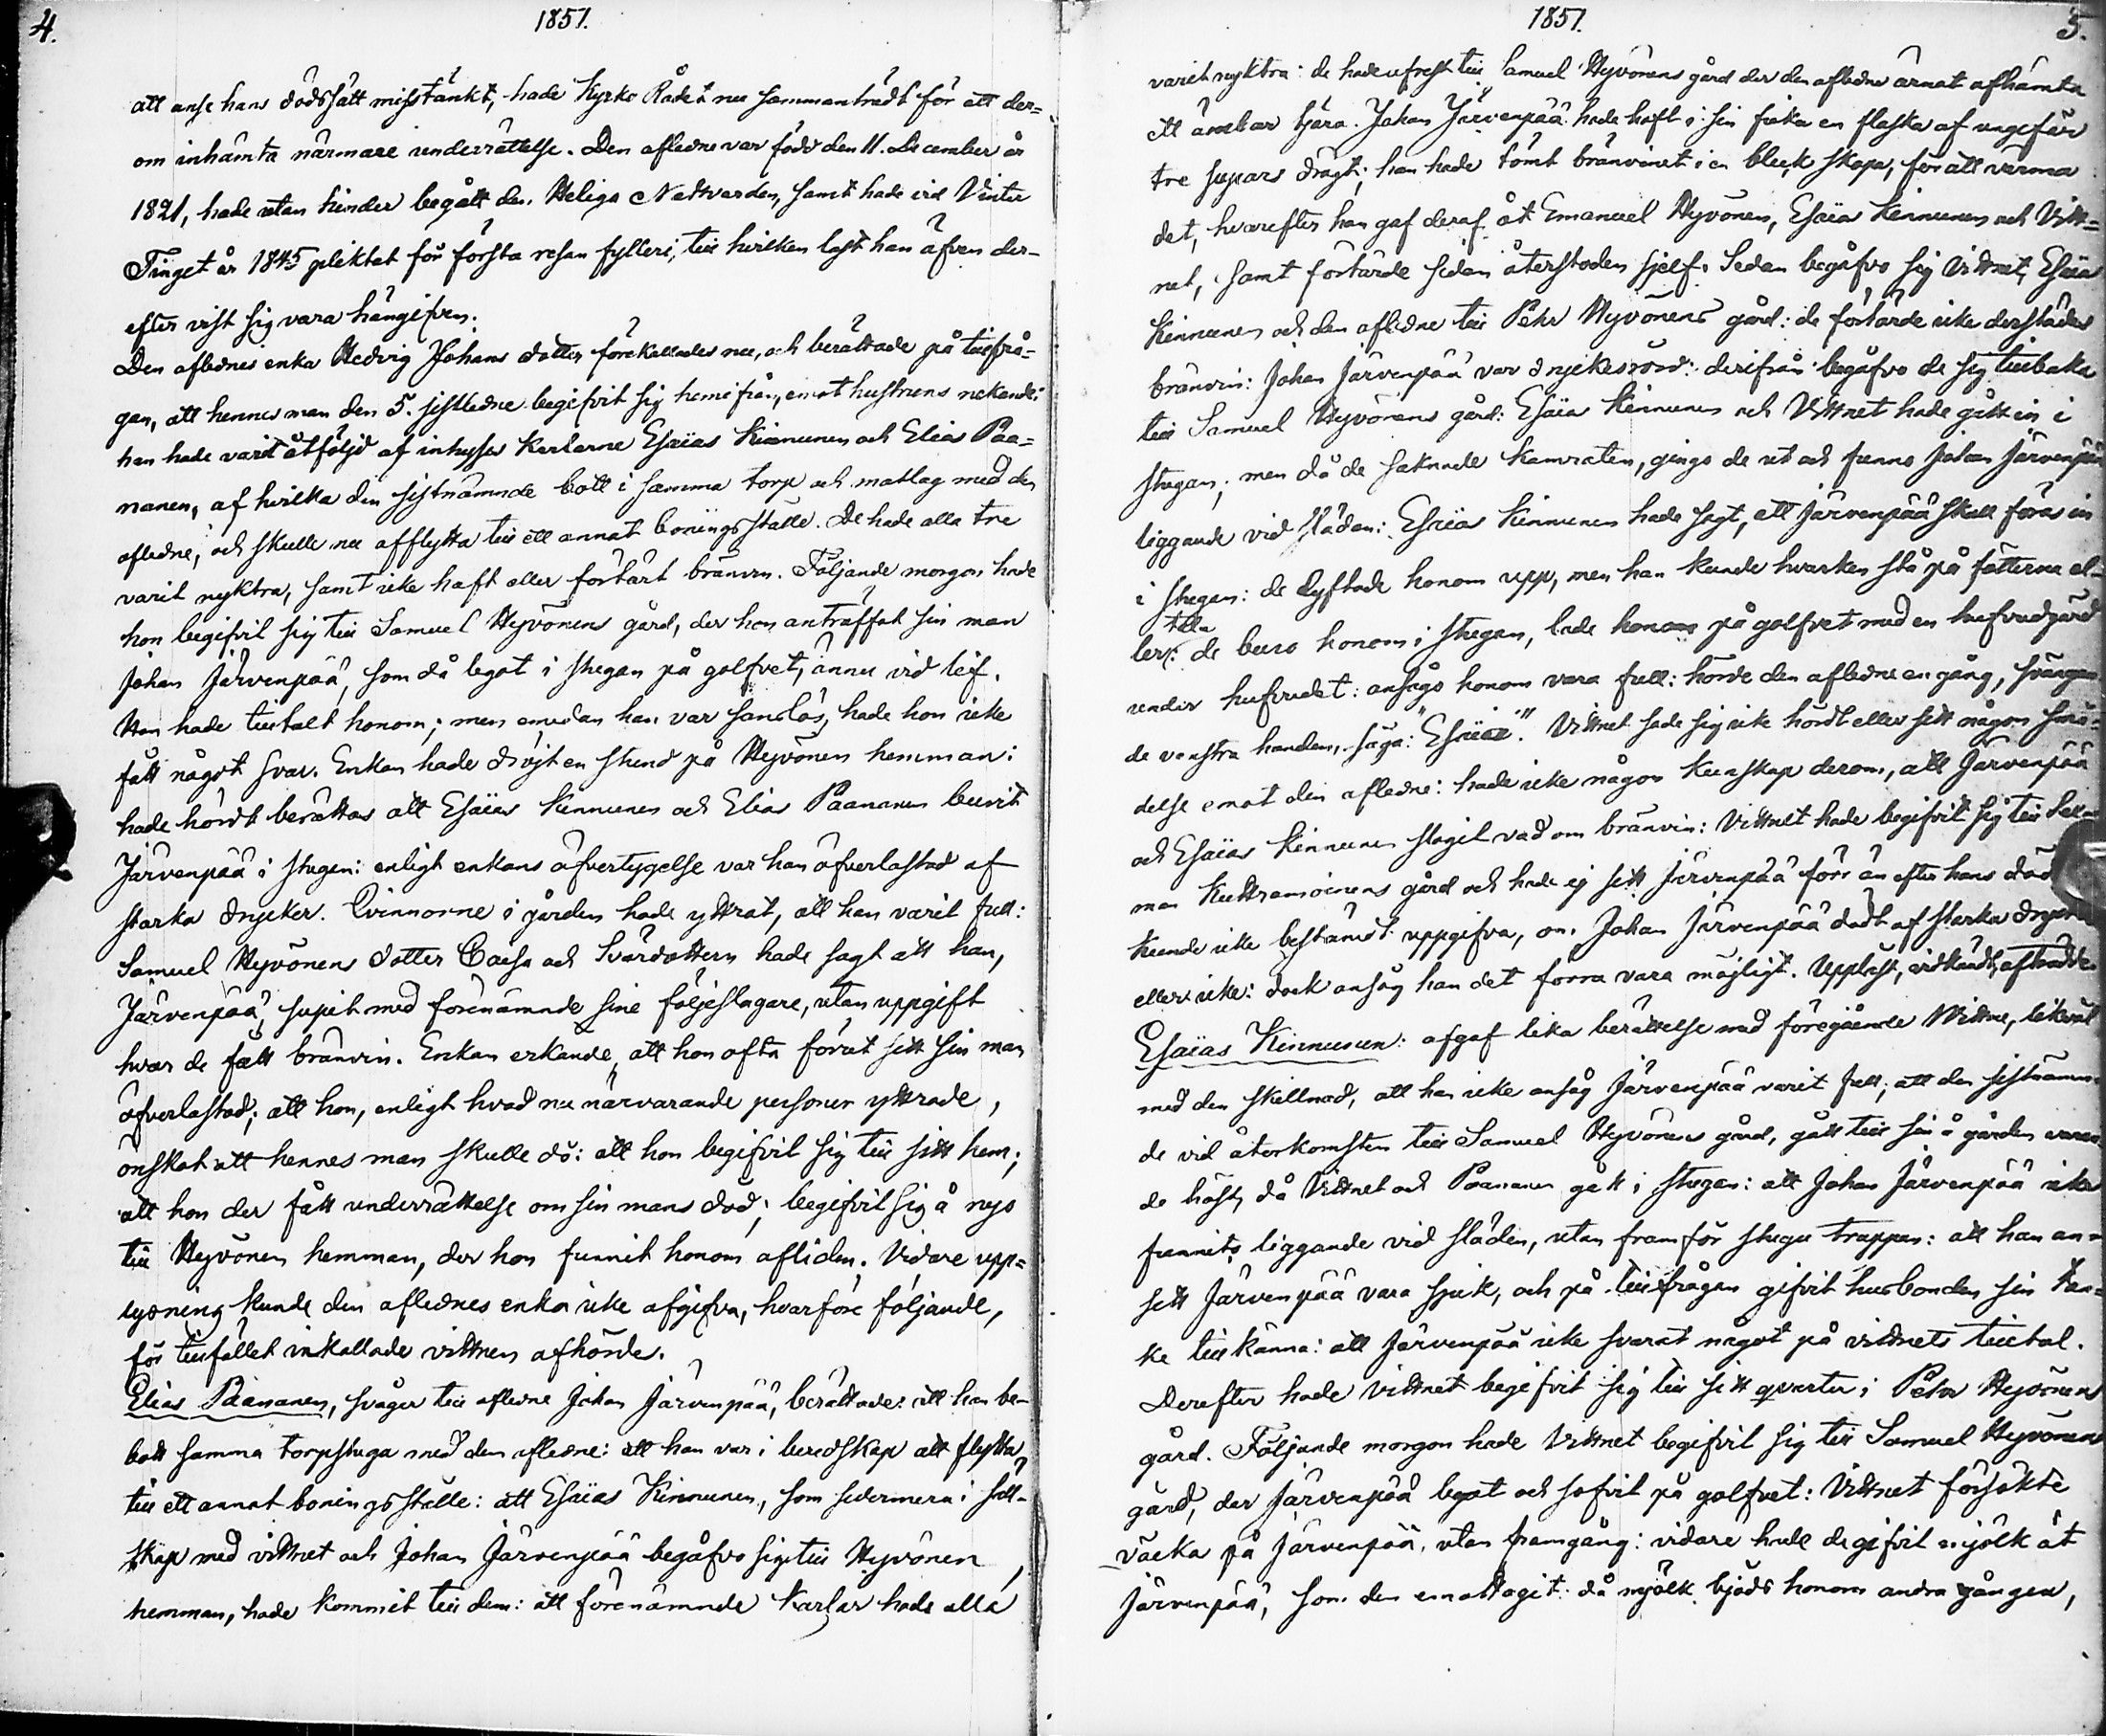 4.
1851.
att anse hans dödssätt misstänkt, hade Kyrko Rådet nu sammanträdt för att der=
om inhämta närmare underrättelse. Den aflidne var född den 11. December år
1821, hade utan hinder begått den Heliga Nattvarden, samt hade vid Vinter
Tinget år 1845 pliktat för första resan fylleri, till hvilken last han äfven der-
efter vist sig vara hängifven.
Den aflednes enka Hedvig Johans dotter förekallades nu, och berättade på tillfrå=
gan, att hennes man den 5. sistledne begifvit sig hemifrån, emot hustruns nekande:
han hade varit åtföljd af inhyses karlarne Esaias Kinnunen och Elias Paa=
nanen, af hvilka den sistnämnde bott i samma torp och matlag med den
afledne, och skulle nu afflytta till ett annat boningsställe. De hade alla tre
varit nyktra, samt icke haft eller förtärt bränvin. Följande morgon hade
hon begifvit sig till Samuel Hyvönens gård, der hon anträffat sin man
Johan Järvenpää, som då legat i stugan på golfvet, ännu vid lif.
Hon hade tilltalt honom; men emedan han var sanslös, hade hon icke
fått något svar. Enkan hade dröjt en stund på Hyvönen hemman:
hade hördt berättas att Esaias Kinnunen och Elias Paananen burit
Järvenpää i stugan: enligt enkans öfvertygelse var han öfverlastad af
starka drycker. Qvinnorne i gården hade yttrat, att han varit full:
Samuel Hyvönens dotter Caisa och Svärdottern hade sagt att han,
Järvenpää, supit med förenämnde sine följeslagare, utan uppgift
hvar de fått bränvin. Enkan erkände, att hon ofta förut sett sin man
öfverlastad; att hon, enligt hvad nu närvarande personer yttrade,
önskat att hennes man skulle dö: att hon begifvit sig till sitt hem;
att hon der fått underrättelse om sin mans död; begifvit sig å nyo
till Hyvönen hemman, der hon funnit honom afliden. Vidare upp=
lysning kunde den aflednes enka icke afgifva, hvarföre följande,
för tillfället inkallade vittnen afhördes.
Elias Paananen, svåger till afledne Johan Järvenpää, berättade: att han be-
bott samma torpstuga med den afledne: att han var i beredskap att flytta
till ett annat boningsställe: att Esaias Kinnunen, som sedermera i säll-
skap med vittnet och Johan Järvenpää begåfvo sig till Hyvönen
hemman, hade kommit till dem: att förenämnde Karlar hade alla
1851.
5.
varit nyktra: de hade afrest till Samuel Hyvönens gård der den afledne ärnat afhämta
ett ämbar tjära. Johan Järvenpää hade haft i sin ficka en flaska af ungefär
tre supars drägt; han hade tömt bränvinet i en bleck skopa, för att värma
det, hvarefter han gaf deraf åt Emanuel Hyvönen, Esaias Kinnunen och Vitt=
net, samt förtärde sedan återstoden sjelf. Sedan begåfvo sig Vittnet, Esaias
Kinnunen och den afledne till Pehr Hyvönens gård: de förtärde icke derstädes
bränvin: Johan Järvenpää var dryckesrörd: derifrån begåfvo de sig tillbaka
till Samuel Hyvönens gård: Esaias Kinnunen och Vittnet hade gått in i
stugan; men då de saknade kamraten, gingo de ut och funno Johan Järvenpää
liggande vid släden: Esaias Kinnunen hade sagt, att Järvenpää skall föras in
i stugan: de lyftade honom upp, men han kunde hvarken stå på fötterna el-
ler tala: de buro honom i stugan, lade honom på golfvet med en hufvudgärd
under hufvudet: ansågo honom vara full: hörde den afledne en gång, svängan
de venstra handen, säga: "Esaias". Vittnet sade sig icke hördt eller sett någon smä=
delse emot den afledne: hade icke någon kunskap derom, att Järvenpää
och Esaias Kinnunen slagit vad om bränvin: Vittnet hade begifvit sig till
man Kuttramoinens gård och hade ej sett Järvenpää förr än efter hans död
kunde icke bestämdt uppgifva, om Johan Järvenpää dödt af starka
eller icke: dock ansåg han det förra vara möjligt. Uppläst, vidkändt, afträdde.
Esaias Kinnunen: afgaf lika berättelse med föregående Vittne, likväl
med den skillnad, att han icke ansåg Järvenpää varit full; att den sistnämn-
de vid återkomsten till Samuel Hyvönens gård, gått till sin å gården varan
de häst, då Vittnet och Paananen gått i stugan: att Johan Järvenpää icke
funnits liggande vid släden, utan framför stugu trappan: att han an=
sett Järvenpää vara sjuk, och på tillfrågan gifvit husbonden sin tan=
ke till känna: att Järvenpää icke svarat något på vittnets tilltal.
Derefter hade Vittnet begifvit sig till sitt qvarter i Pehr Hyvönens
gård. Följande morgon hade Vittnet begifvit sig till Samuel Hyvönens
gård, der Järvenpää legat och sofvit på golfvet: Vittnet försökte
väcka på Järvenpää, utan framgång: vidare hade de gifvit mjölk åt
Järvenpää, som den emottagit: då mjölk bjöds honom andra gången,